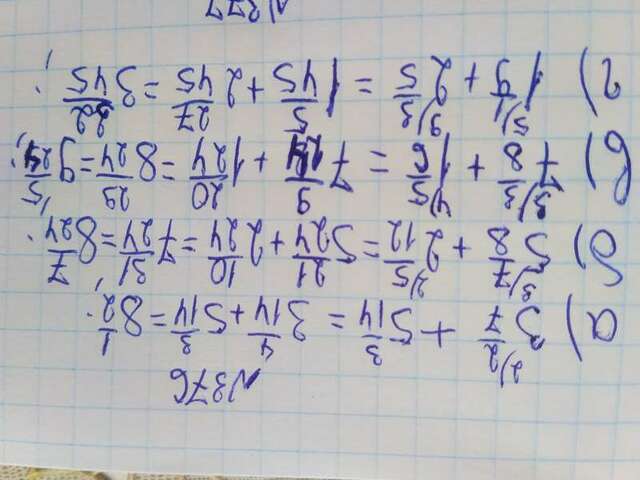 №376
а) 3 2/7 + 5 3/14 = 3 4/14 + 5 3/14 = 8 1/2.
б) 5 7/8 + 2 5/12 = 5 21/24 + 2 10/24 = 7 31/24 = 8 7/24.
в) 7 3/8 + 1 5/6 = 7 9/24 + 1 20/24 = 8 29/24 = 9 5/24;
г) 1 1/9 + 2 3/5 = 1 5/45 + 2 27/45 = 3 32/45;
№377